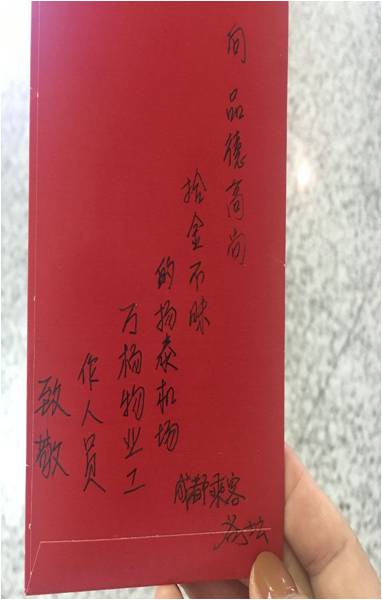 向品德高尚
拾金不昧
的扬泰机场
万杨物业工
作人员
致敬
成都乘客